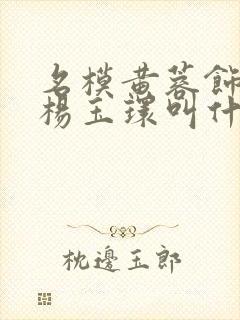 名模黄蓉飾
楊玉環叫什
枕邊玉郎